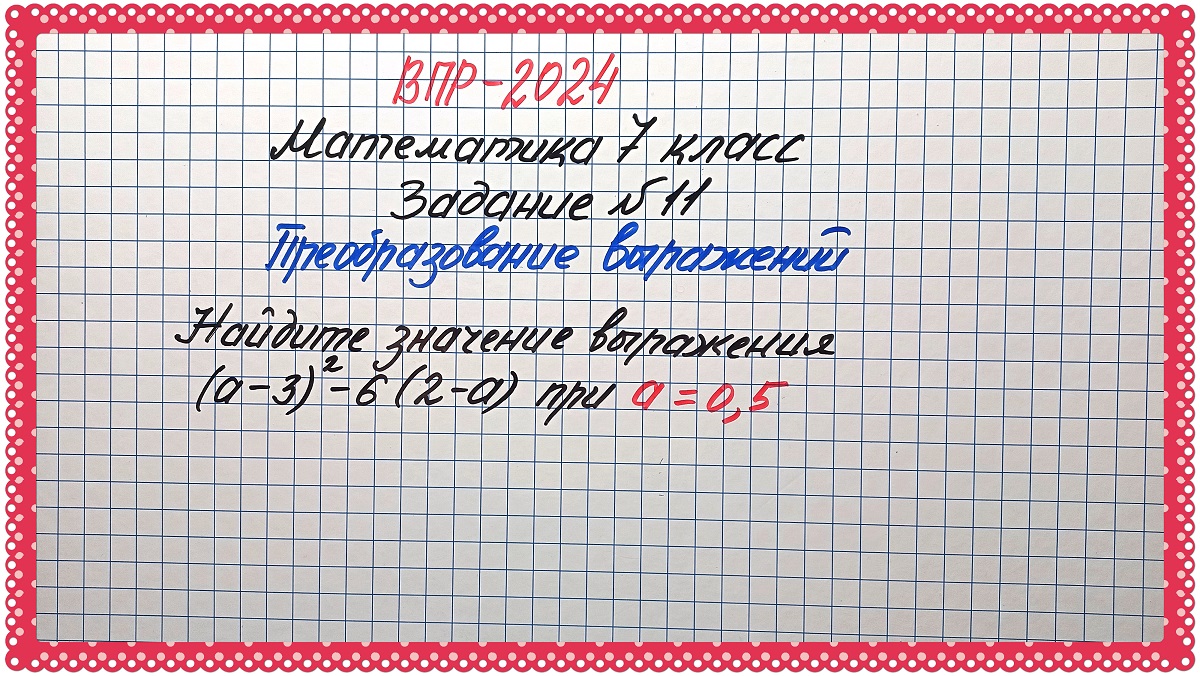 ВПР-2024
Математика 7 класс
Задание №11
Преобразование выражений
Найдите значение выражения
(a-3)²-6(2-a) при a=0,5